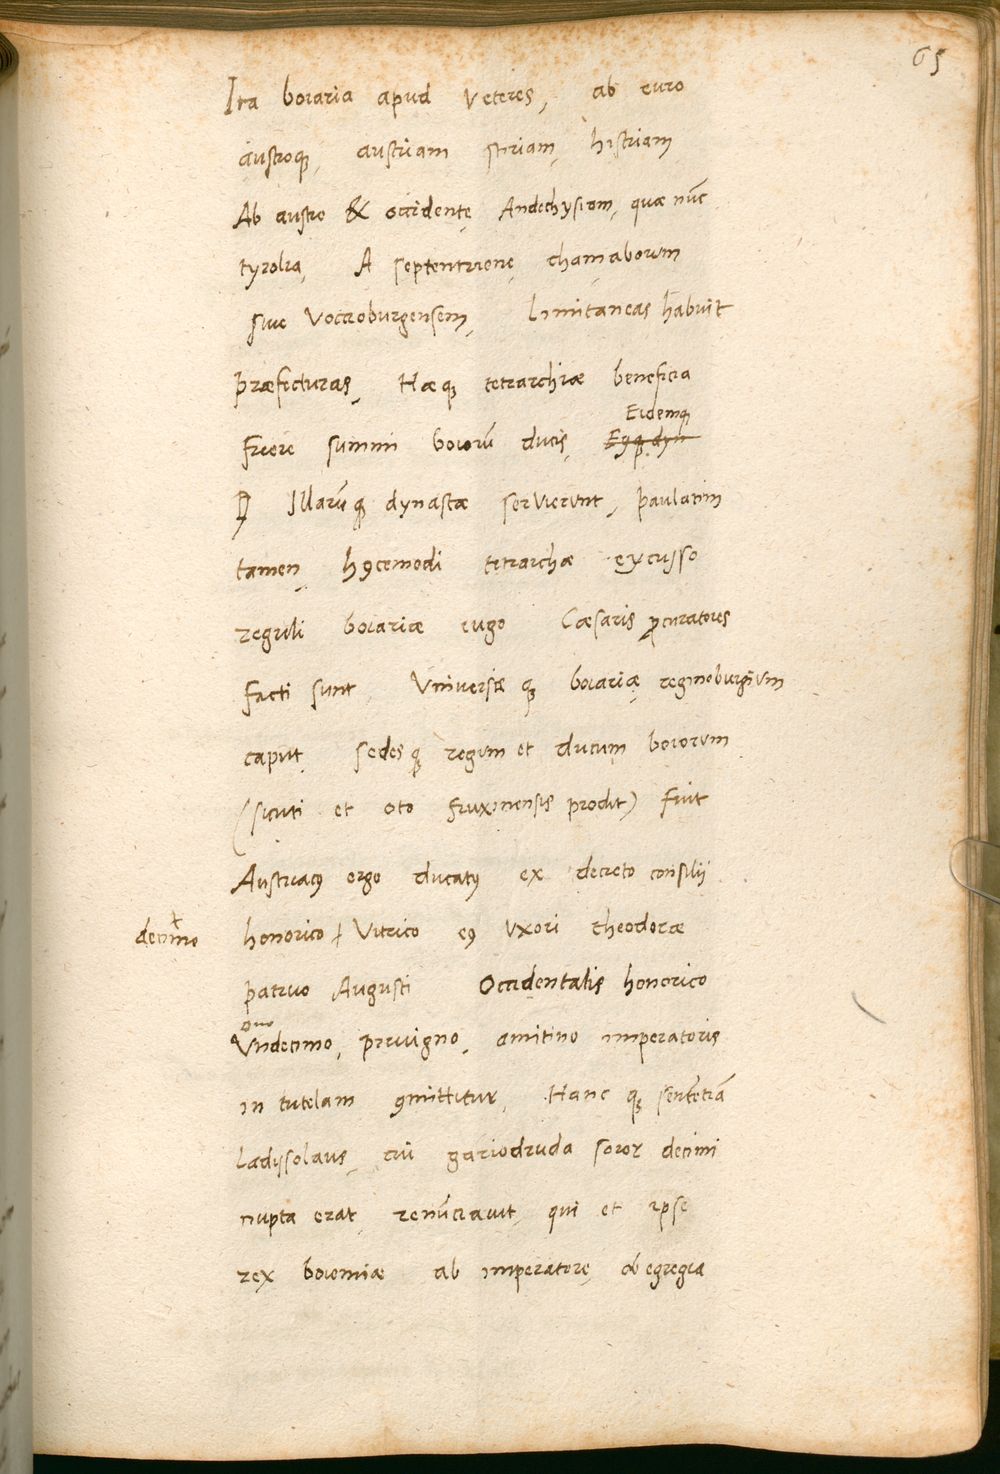 65
Ita boiaria apud Veteres, ab euro
austroq;, austriam stiriam, histriam
Ab austro & occidente Andechysiom, quæ nūc
tyrolia, A septentrione chamaborum
siue Vocroburgensem, Limitaneas habuit
præfecturas, Hæq; tetrarchiæ beneficia
Eidemq;
fuere summi boiorū ducis,
Illarūq; dynastæ seruierunt, paulatim
tamen hꝰcemodi tetrarchæ excusso
reguli boiariæ iugo Cæsaris ꝓcuratores
facti sunt, Vniuersæ q; boiariæ reginoburgium
caput, sedes q; regum et ducum boiorum
(sicuti et oto fruxinensis prodit) fuit
Austriacꝰ ergo ducatꝰ ex decreto consilii
decimo honorico Vitrico eꝰ Vxori theodoræ
patruo Augusti Occidentalis honorico
ono
Vndecimo, priuigno, amitino imperatoris
in tutelam ꝯmittitur, Hanc q; sentētiā
Ladyssolaus, cui gariodruda soror decimi
nupta erat, renūciauit, qui et ipse
rex boiemiæ ab imperatore ob egregia